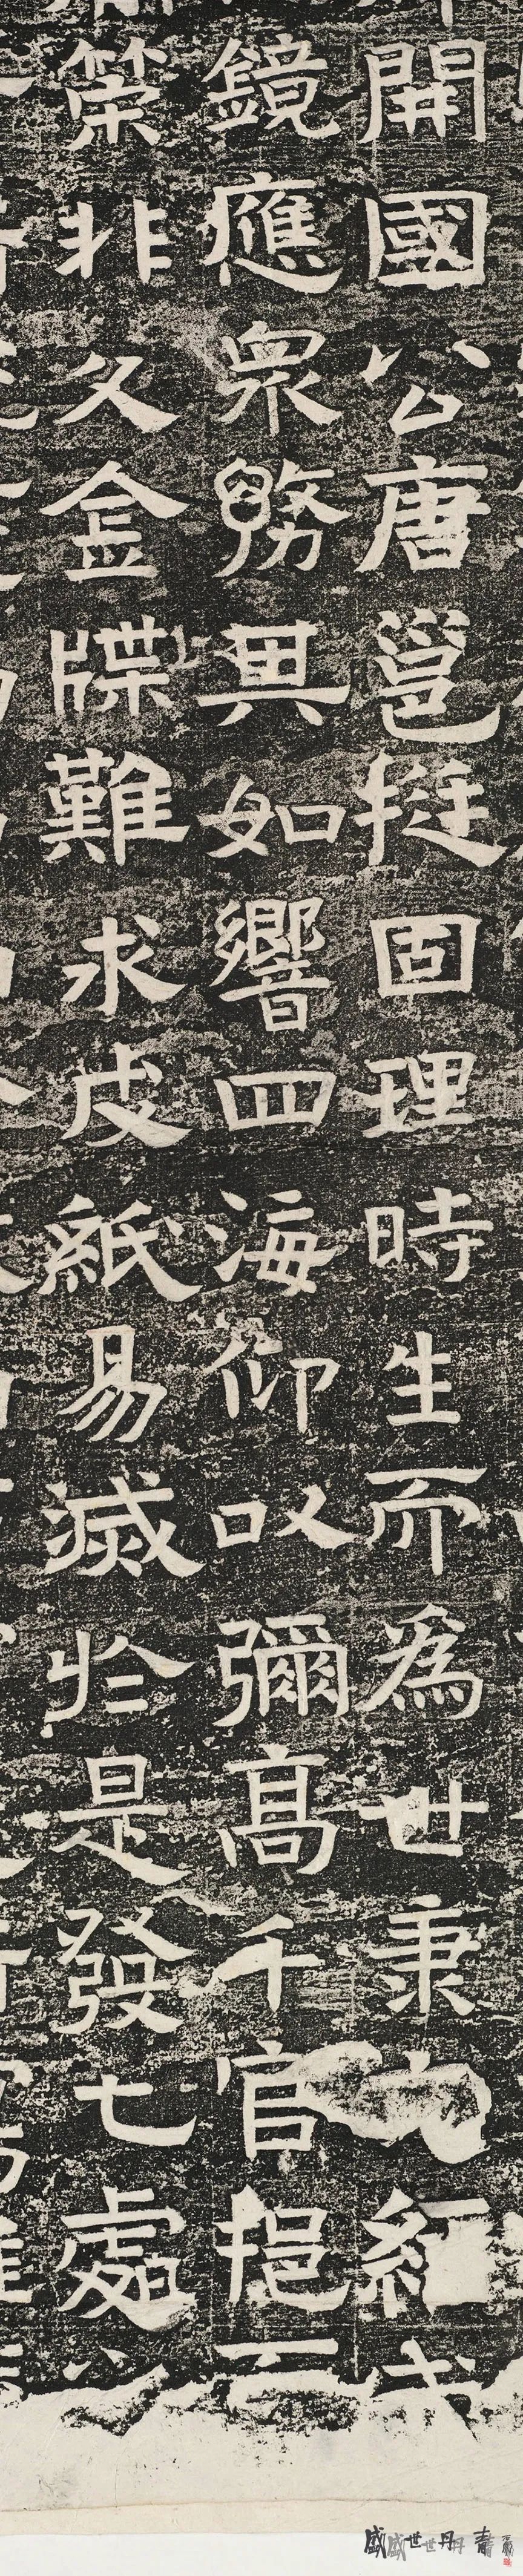 開國公唐邕挺固理時生而為世秉紀
鏡應眾務其如響四海仰以彌高千官挹
策非久金牒難求皮紙易滅於是發七處
盛世丹青